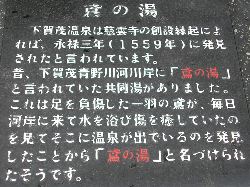 鳶の湯
下賀茂温泉は慈雲寺の創設縁起によ
れば、永禄三年(1559年)に発見
されたと言われています。
昔、下賀茂青野川河川岸に「鳶の湯」
と言われていた共同湯がありました。
これは足を負傷した一羽の鳶が、毎日
河岸に来て水を浴び傷を癒していたの
を見てそこに温泉が出ているのを発見
したことから「鳶の湯」と名づけられ
たそうです。